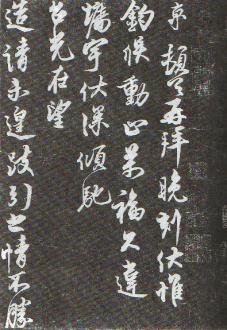 京 頓首再拜晚刻伏惟
鈞候動止萬福久違
牆宇伏深傾馳
台光在望
造請未遑跂引之情不勝